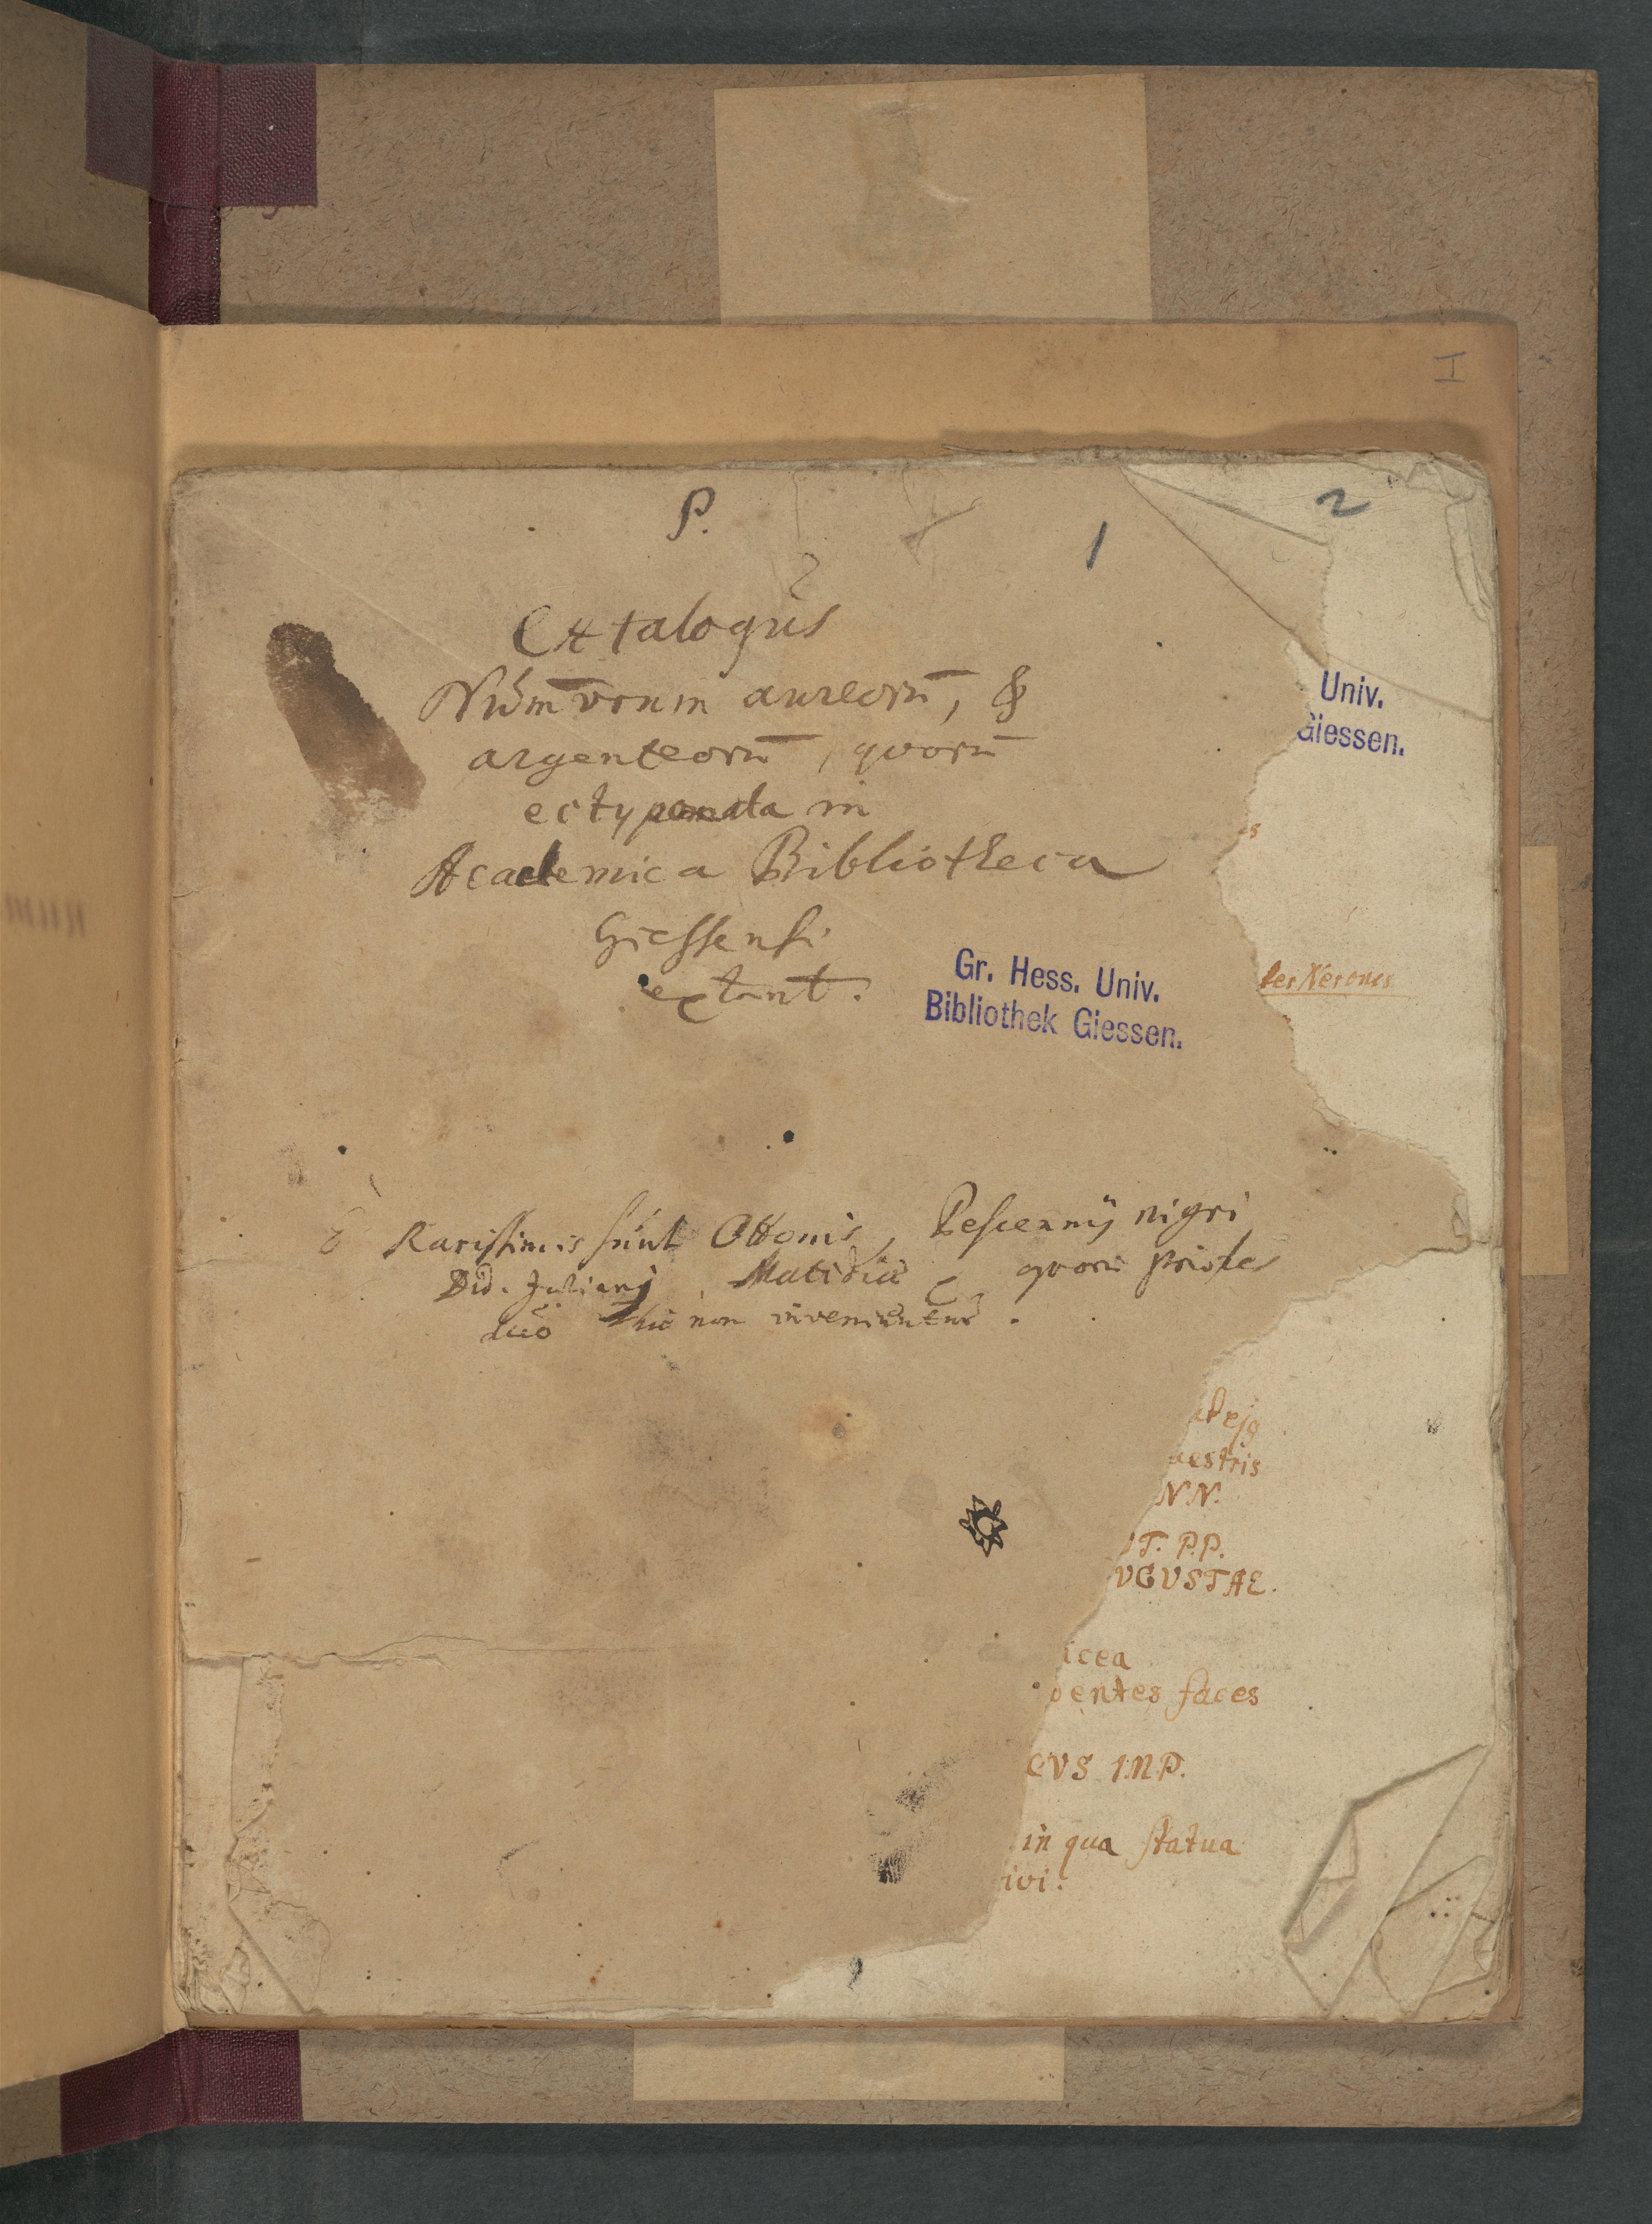 I
2
P.
1
Catalogus
Num̄orum aureorū, &
argenteorū, quorū
ectypomata in
Academica Bibliotheca
Giessensi
extant.
Univ.
Giessen.
Gr. Hess. Univ.
Bibliothek Giessen.
es
les Nerones
E Rarissimis sunt Ottonis, Pescennij nigri
Did. Juliani, Matidiae quorū priores
duo hic non inveniuntur.
aestris
NN.
T. P.P.
VGVSTAE.
icea
dentes faces
CVS IMP.
in qua statua
ivi.